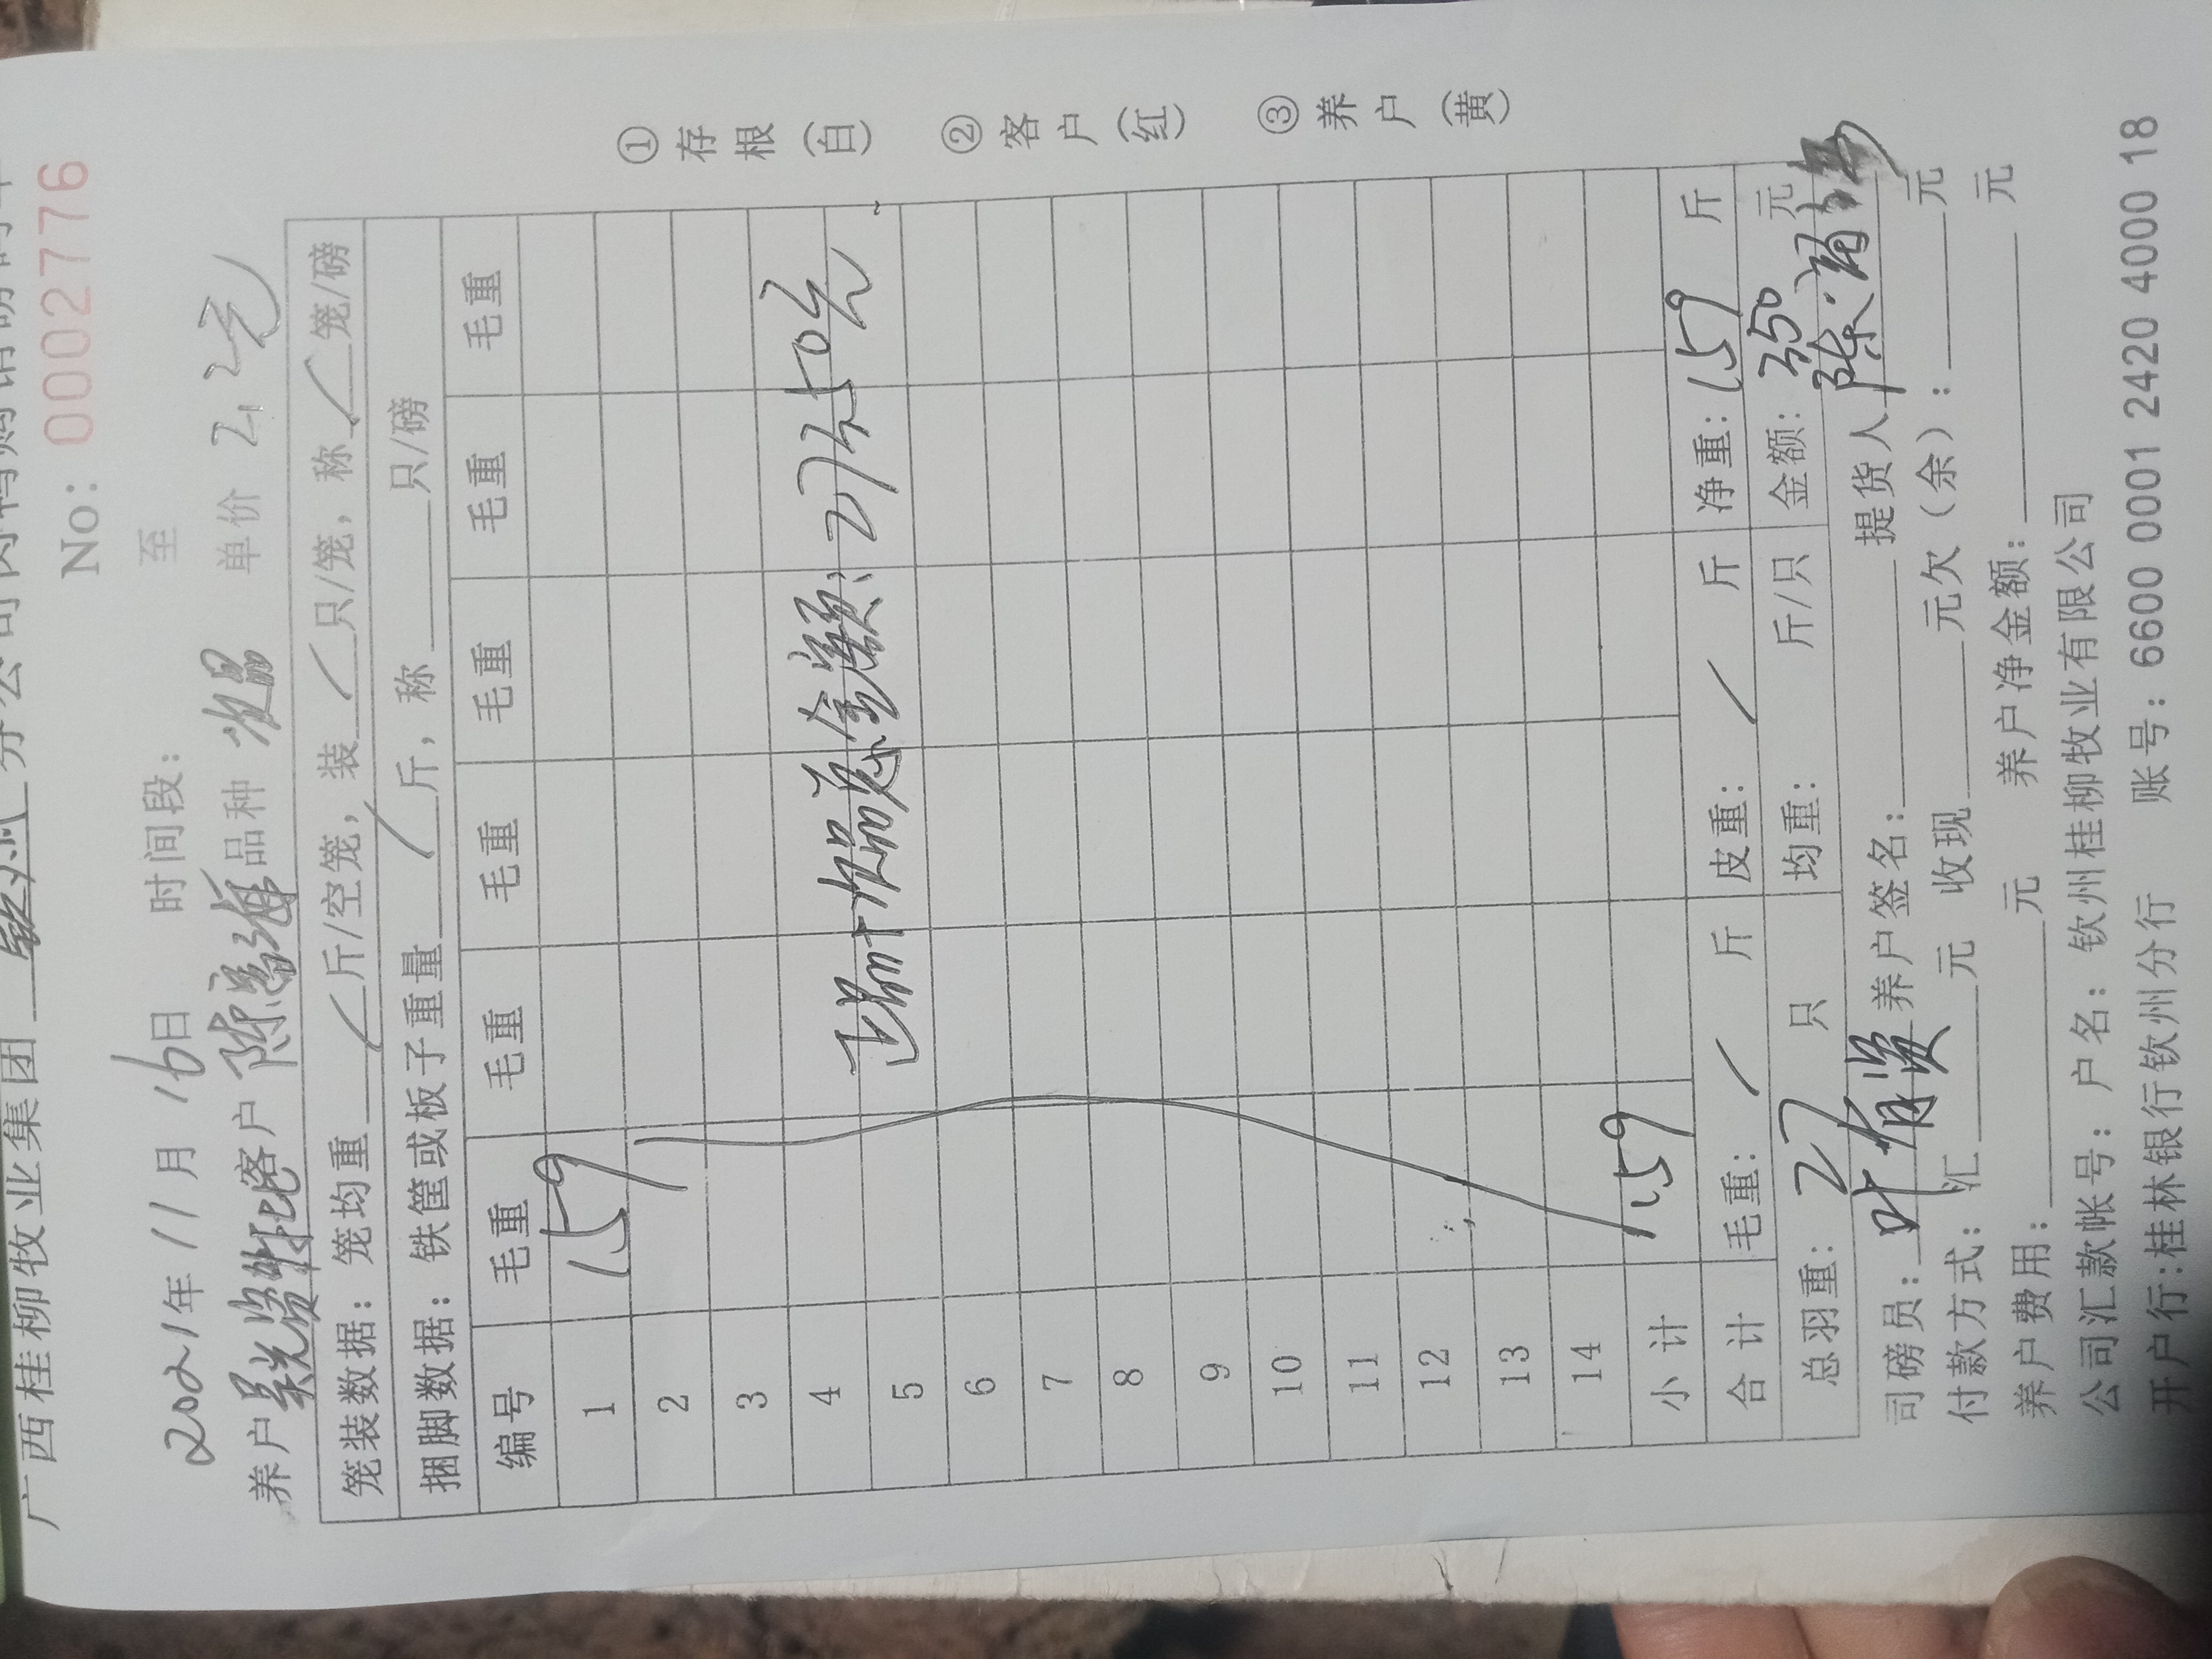 广西桂柳牧业集团 钦州 分公司肉鸭购销磅码单
No: 0002776
2021年11月16日 时间段: 至
养户 客户 陈 品种 次品 单价 2.2元
笼装数据: 笼均重 斤/空笼, 装 只/笼, 称 笼/磅
捆脚数据: 铁筐或板子重量 斤, 称 只/磅
编号 毛重 毛重 毛重 毛重 毛重 毛重
1 159
2
3
4
5
正品+次品总金额: 27450元
6
7
8
9
10
11
12
13
14
小计 159
合计 毛重: 斤 皮重: 斤 净重: 159 斤
总羽重: 27 只 均重: 斤/只 金额: 350 元
司磅员: 叶 养户签名: 提货人 陈
付款方式: 汇 元 收现 元欠(余): 元
养户费用: 元 养户净金额: 元
公司汇款帐号: 户名: 钦州桂柳牧业有限公司
开户行:桂林银行钦州分行 账号: 6600 0001 2420 4000 18
①存根(白) ②客户(红) ③养户(黄)